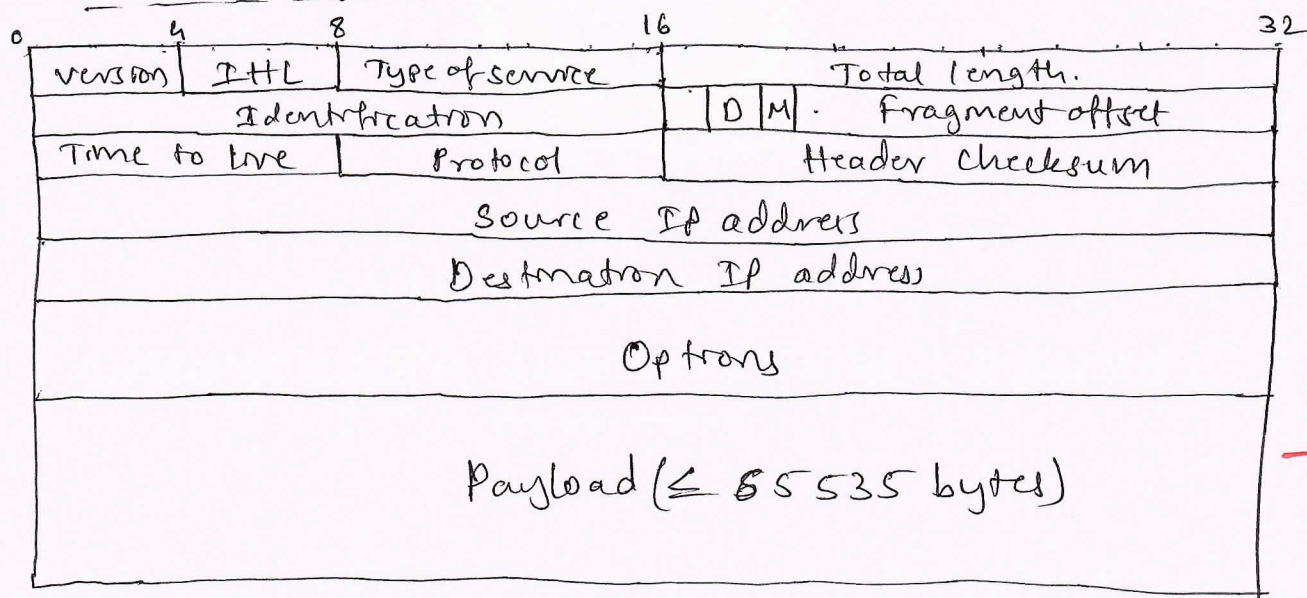 0 4 8 16 32
version IHL Type of service Total length.
Identification D M . Fragment offset
Time to live Protocol Header checksum
Source IP address
Destination IP address
Options
Payload (≤ 65535 bytes)